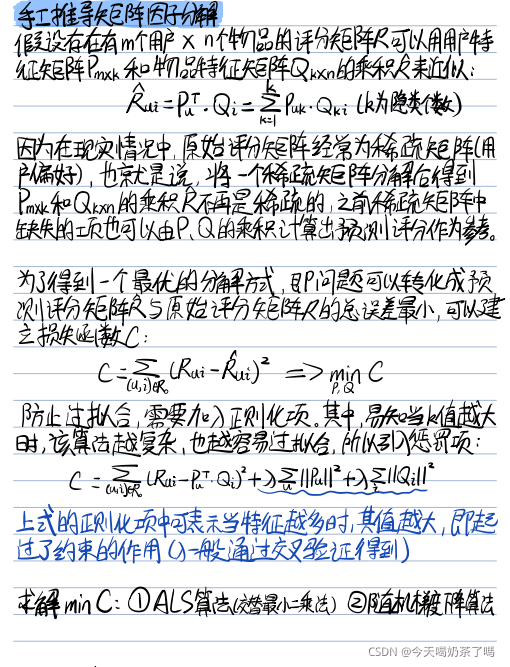 手工推导矩阵因子分解
假设存在有m个用户 × n个物品的评分矩阵R可以用用户特
征矩阵Pm×k 和物品特征矩阵Qk×n的乘积R̂来近似:
R̂ui = Pu^T · Qi = Σ(k=1→k) Puk · Qki (k为隐类个数)
因为在现实情况中,原始评分矩阵经常为稀疏矩阵(用
户偏好),也就是说,将一个稀疏矩阵分解会得到
Pm×k 和Qk×n的乘积R̂不再是稀疏的,之前稀疏矩阵中
缺失的项也可以由P、Q的乘积计算出预测评分作为参考。
为了得到一个最优的分解方式,即问题可以转化成预
测评分矩阵R̂与原始评分矩阵R的总误差最小,可以建
立损失函数C:
C = Σ(u,i)∈R₀ (Rui - R̂ui)² => min P,Q C
防止过拟合,需要加入正则化项。其中,易知当k值越大
时,该算法越复杂,也越容易过拟合,所以引入惩罚项:
C = Σ(u,i)∈R₀ (Rui - Pu^T · Qi)² + λΣu||Pu||² + λΣi||Qi||²
上式的正则化项中可表示当特征越多时,其值越大,即起
过了约束的作用(λ一般通过交叉验证得到)
求解 min C: ①ALS算法(交替最小二乘法) ②随机梯度下降算法
CSDN @今天喝奶茶了嗎